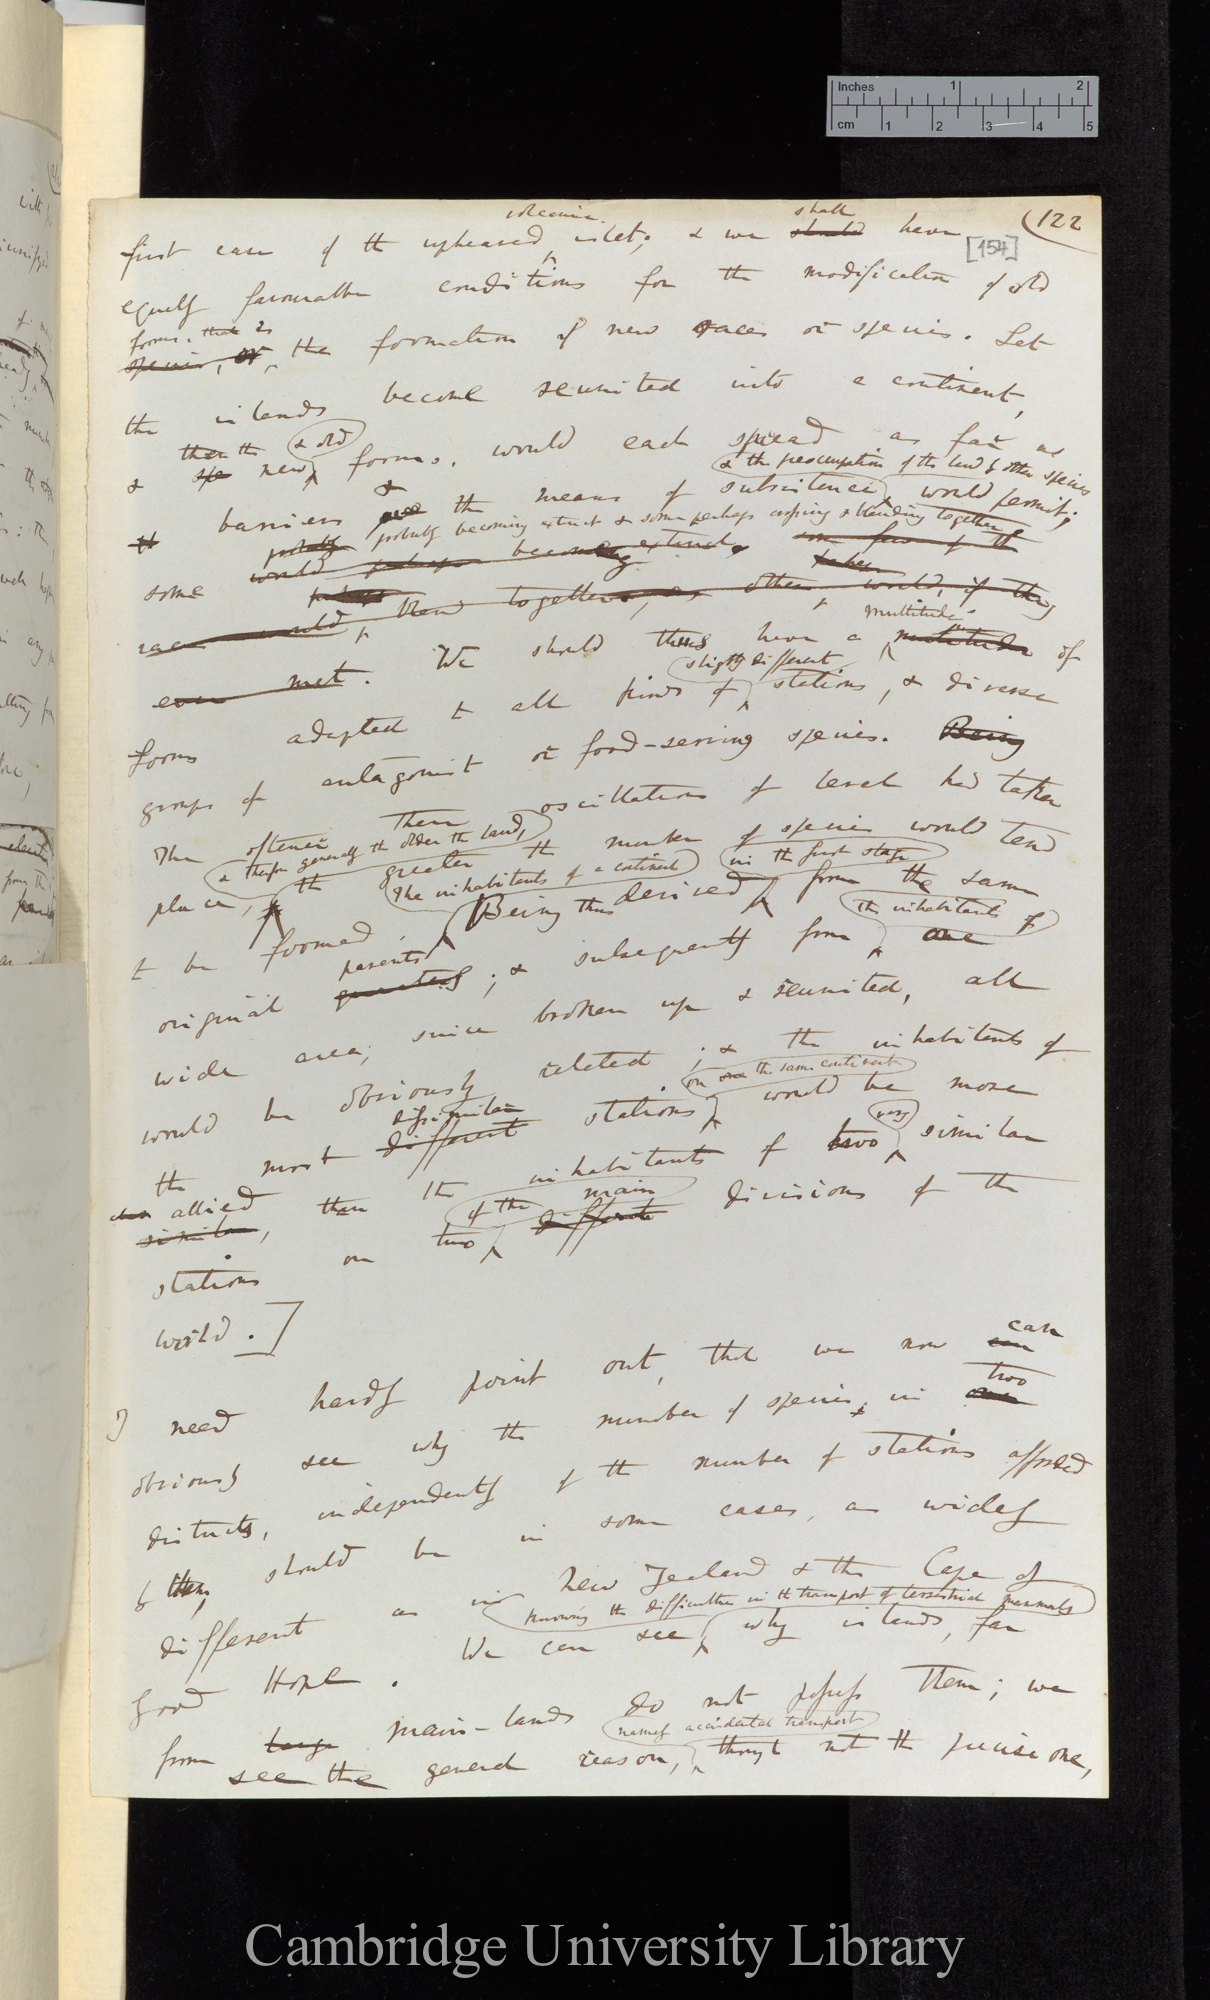 Inches 1 2
cm 1 2 3 4 5
122
[154]
volcanic shall
first case of the upheaved islet; & we should have
equally favourable conditions for the modification of old
forms, that is
species, or the formation of new races or species. Let
the islands become reunited into a continent,
then the & old
& spe new forms, would each spread as far as
& the preoccupation of the land by other species
barriers & the means of subsistence would permit;
probably probably becoming extinct & some perhaps crossing & blending together
some would perhaps becoming extinct, some few of the
races would blend together, as others would, if they
multitude
ever met. We should thus have a multitude of
slightly different
forms adapted to all kinds of stations, & diverse
groups of antagonist or food-serving species. Being
The oftener these oscillations of level had taken
& therefore generally the older the land,
place, the greater the number of species would tend
The inhabitants of a continent in the first stage
to be formed. Being thus derived from the same
parents the inhabitants of
original quarters; & subsequently from one
wide area, since broken up & reunited, all
would be obviously related; & the inhabitants of
dissimilar on one the same continent
the most different stations would be more
allied very
similar, than the inhabitants of two similar
of the main
stations on two different divisions of the
world.]
I need hardly point out, that we now can can
obviously see why the number of species, in two one
districts, independently of the number of stations afforded
by them, should be in some cases, as widely
different as in New Zealand & the Cape of
knowing the difficulties in the transport of terrestrial mammals
Good Hope. We can see, why islands, far
from large main-lands do not possess them; we
namely accidental transport
see the general reason, though not the precise one,
Cambridge University Library